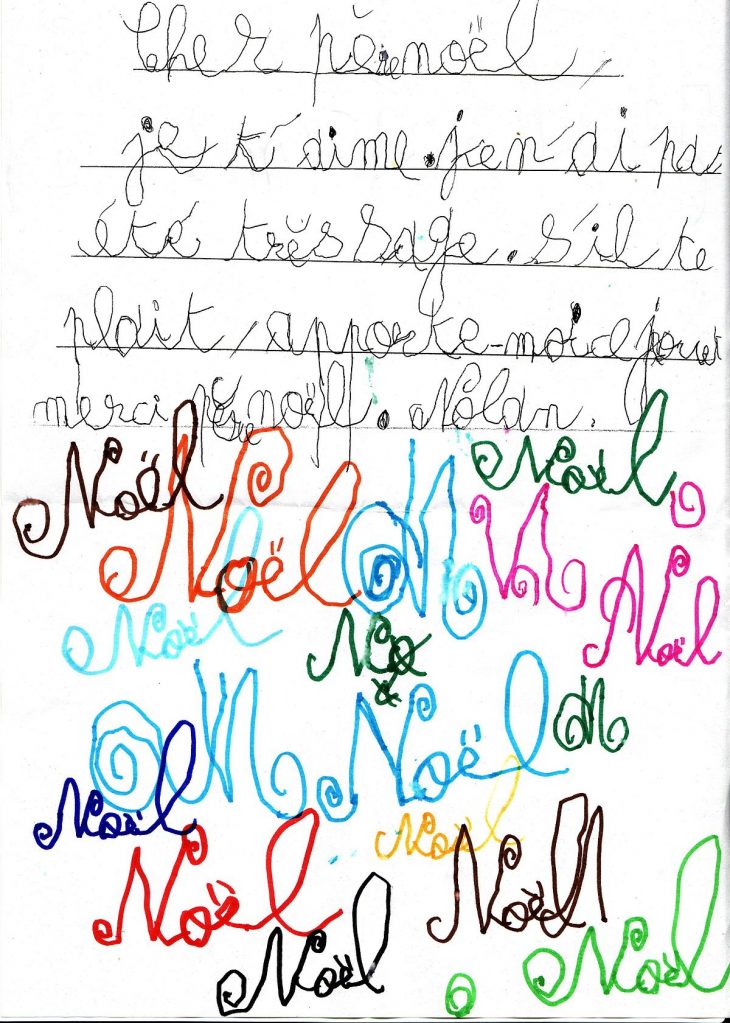 Cher père noël,
je t'aime. je n'ai pas
été très sage. S'il te
plait, apporte-moi le jouet
merci père Noël. Nolan.
Noël
Noël
Noël
N
N
Noël
Noël
No
N
Noël
N
Noël
Noël
Noël
Noël
Noël
Noël